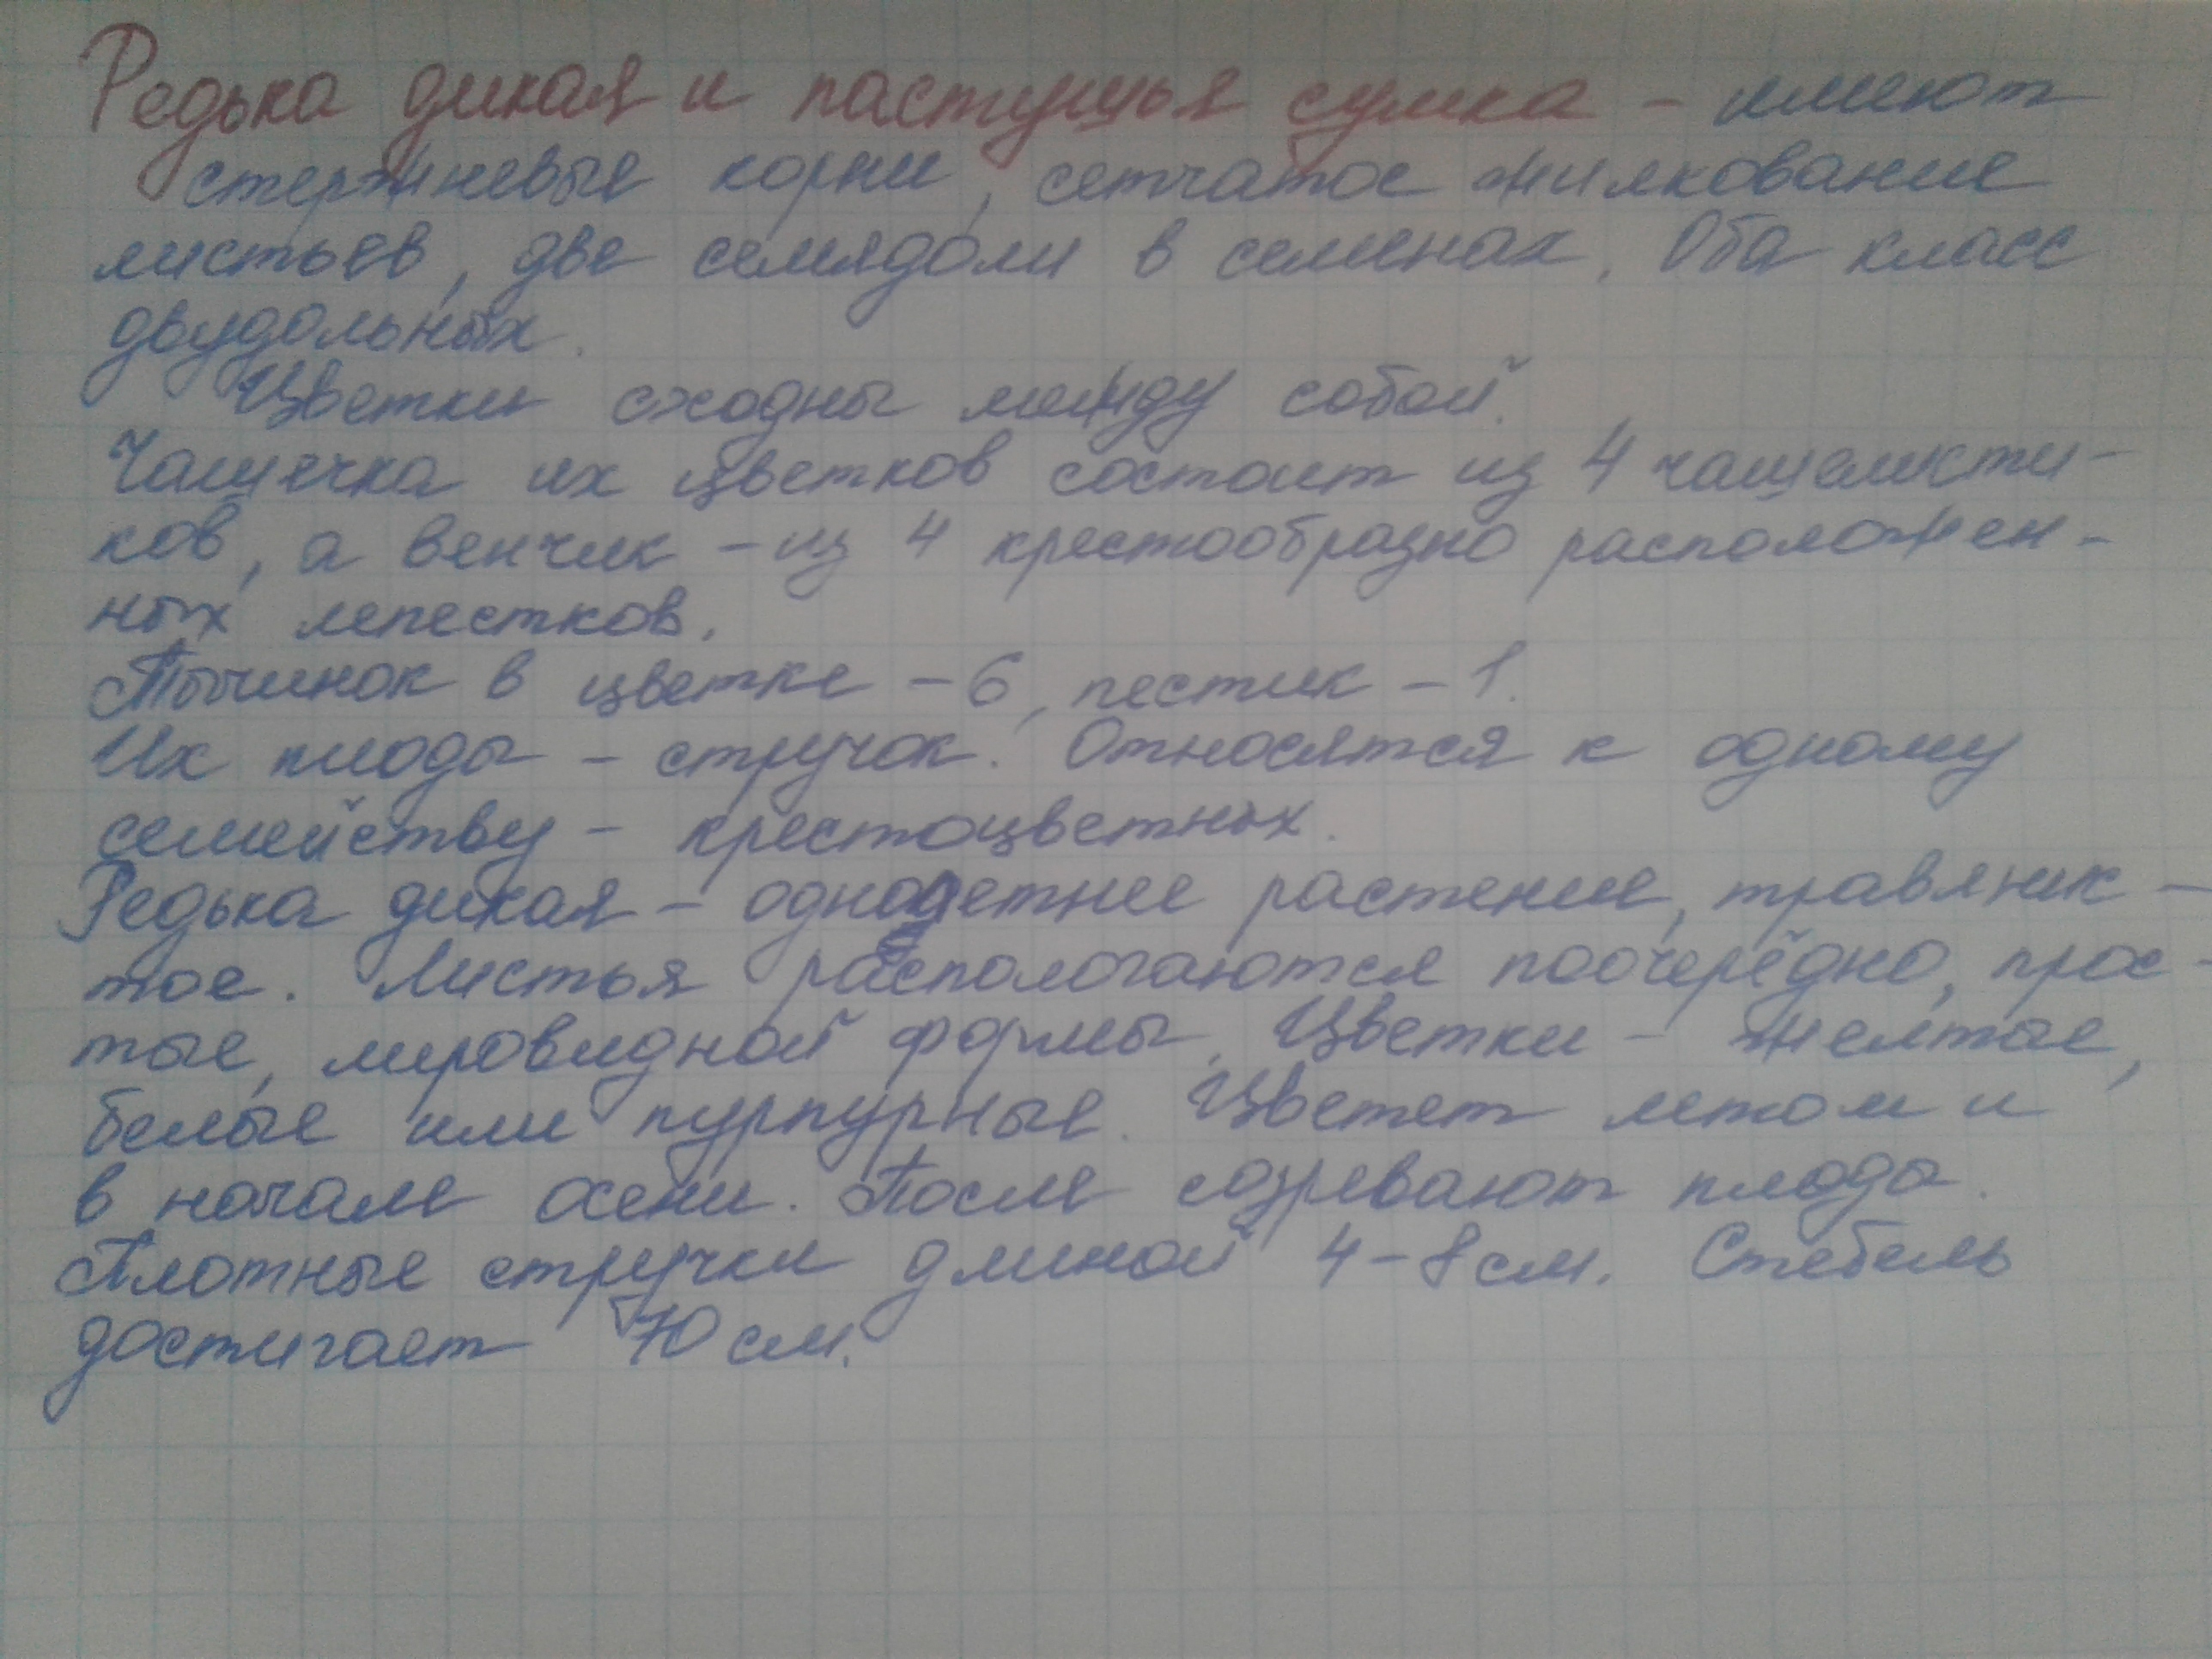 Редька дикая и пастушья сумка - имеют
стержневые корни, сетчатое жилкование
листьев, две семядоли в семенах. Оба класс
двудольных.
Цветки сходны между собой.
Чашечка их цветков состоит из 4 чашелисти-
ков, а венчик - из 4 крестообразно расположен-
ных лепестков.
Тычинок в цветке - 6, пестик - 1.
Их плоды - стручок. Относятся к одному
семейству - крестоцветных.
Редька дикая - однолетнее растение, травянис-
тое. Листья распологаются поочерёдно, прос-
тые, лировидной формы. Цветки - желтые,
белые или пурпурные. Цветет летом и
в начале осени. После созревают плоды.
Плотные стручки длиной 4-8 см. Стебель
достигает 70 см.